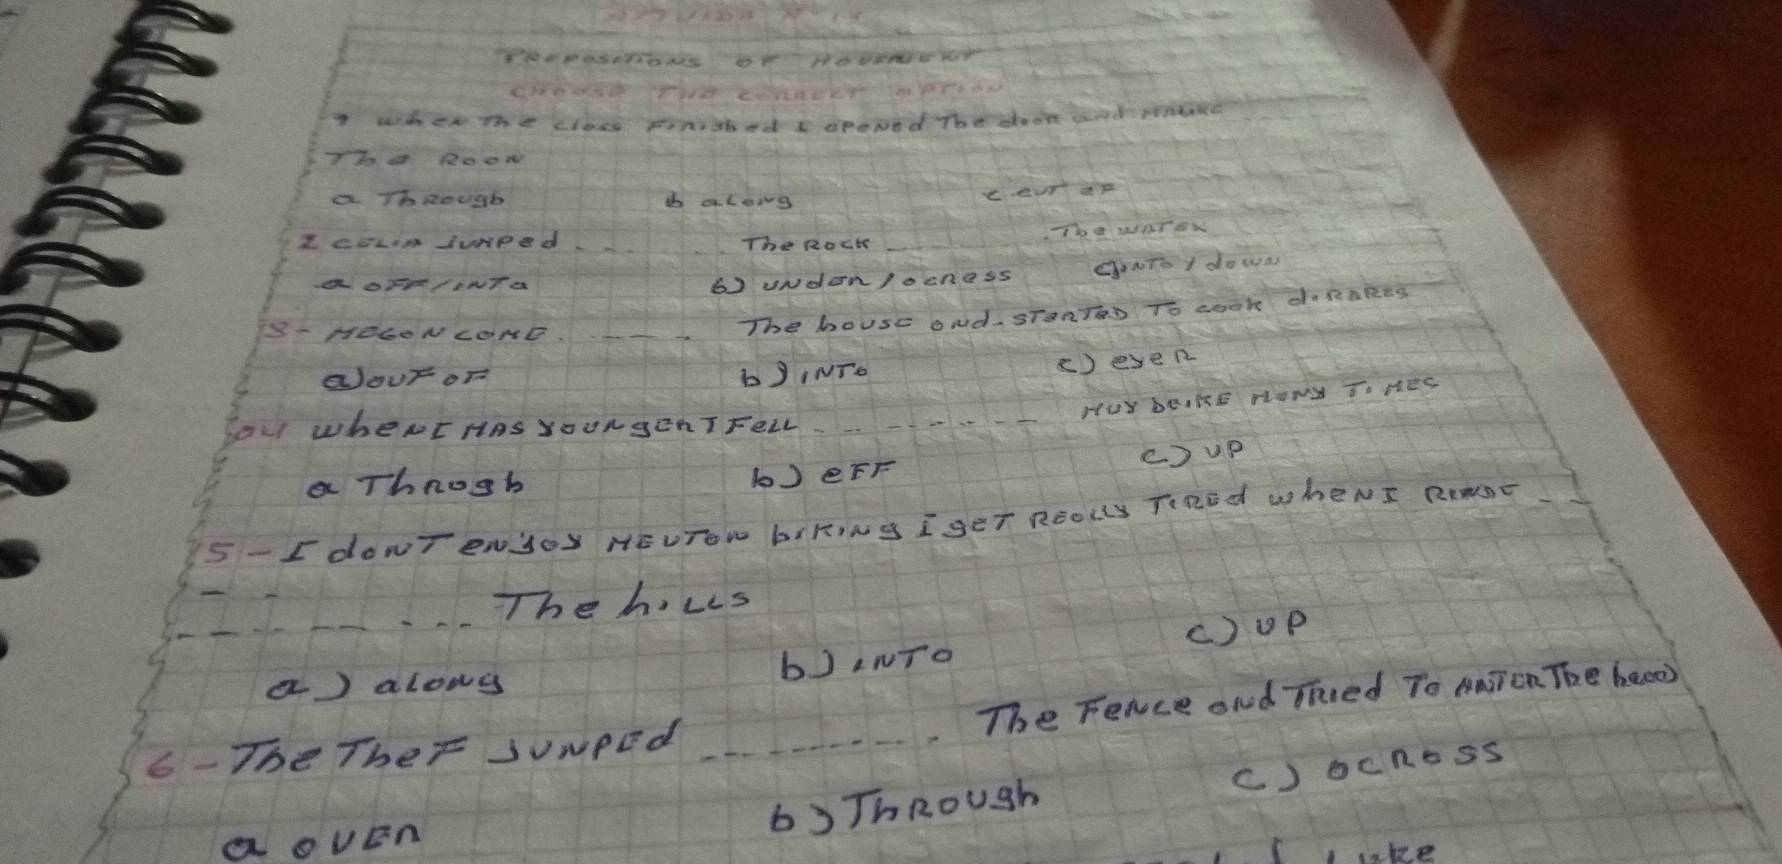 PREPOSITIONS OF MOVEMENT
CHOOSE THE CORRECT OPTION
when The class Finished I opened The door and
The Room
a Through b along c out of
2 CELIA JUMPed . . . . . . The ROCK . . . . . . The WATER
a OFF/INTO b) under / ocress c) INTO / down
3- MEGON COME . - - - . The house ond STARTED TO COOK
a) OUT OF b) INTO c) over
04 wheN I HAS YOUNgER I FeLL . - - - - - - - MONY TIMES
a Throgh b) OFF c) UP
5 - I doNT eNjoy biKiNg I geT REOLLY TIREd wheN I - - -
- - - - - - - - . . . The hiLLs
a) aLoNg b) INTO c) UP
6 - The TheF JUMPEd - - - - - - - . The FeNce oNd TRied To The
a OVER b) ThROUgh c) OCROSS